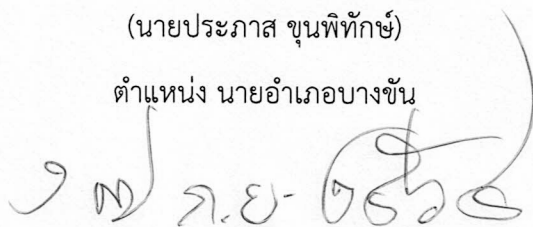 (นายประภาส ขุนพิทักษ์)
ตำแหน่ง นายอำเภอบางขัน
ก.ย.